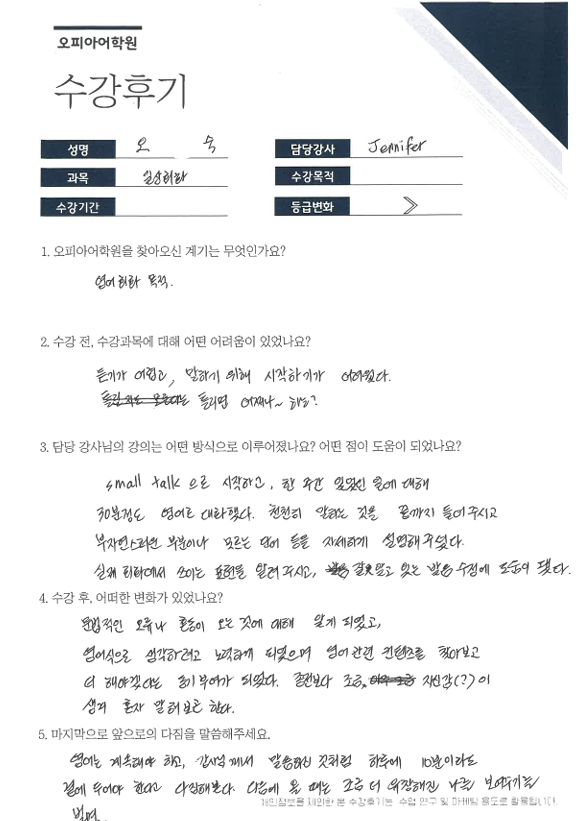 오피아어학원
수강후기
성명 오 숙 담당강사 Jennifer
과목 일상회화 수강목적
수강기간 등급변화
1. 오피아어학원을 찾아오신 계기는 무엇인가요?
영어회화 목적.
2. 수강 전, 수강과목에 대해 어떤 어려움이 있었나요?
듣기가 어렵고, 말하기 위해 시작하기가 어려웠다.
틀리면 어쩌나~ 하는?
3. 담당 강사님의 강의는 어떤 방식으로 이루어졌나요? 어떤 점이 도움이 되었나요?
small talk 으로 시작하고, 한 주간 있었던 일에 대해
30분정도 영어로 대화했다. 천천히 말하는 것을 끝까지 들어주시고
부자연스러운 부분이나 모르는 단어 등을 자세하게 설명해주셨다.
실제 회화에서 쓰이는 표현을 알려주시고, 잘못알고 있는 발음 수정에 도움이 됐다.
4. 수강 후, 어떠한 변화가 있었나요?
문법적인 오류나 혼동이 오는 것에 대해 알게 되었고,
영어식으로 생각하려고 노력하게 되었으며 영어관련 컨텐츠를 찾아보고
더 해야겠다는 동기부여가 되었다. 전보다 조금, 자신감(?)이
생겨 혼자 말해보곤 한다.
5. 마지막으로 앞으로의 다짐을 말씀해주세요.
영어는 계속해야 하고, 강사님께서 말씀하신 것처럼 하루에 10분이라도
곁에 두어야 한다고 다짐해본다. 다음에 올 때는 조금 더 유창해진 나를 보여주기를
바라며.
개인정보를 제외한 본 수강후기는 수업 연구 및 마케팅 용도로 활용됩니다.